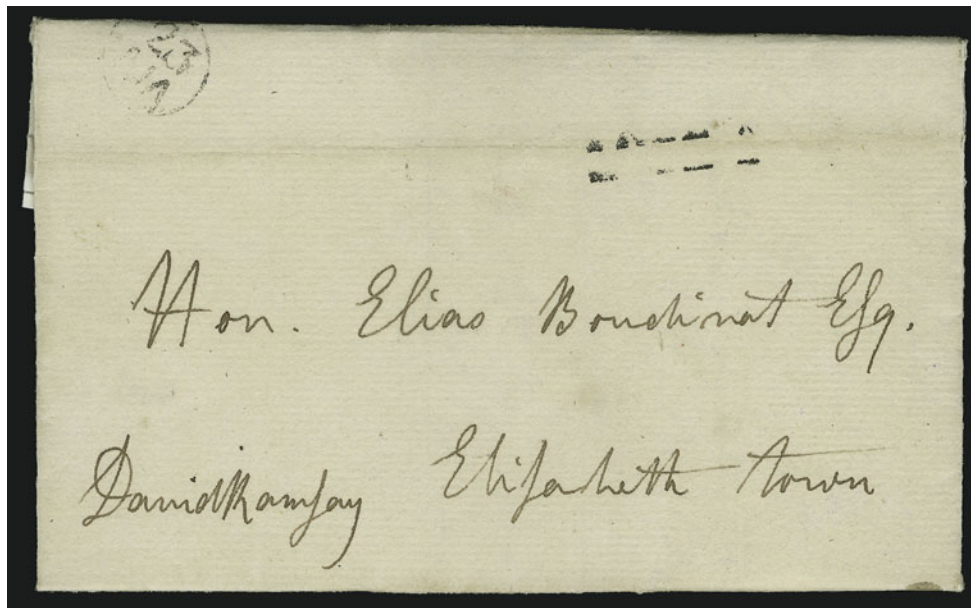 23
Hon. Elias Boudinot Eſq.
David Ramſay Eliſabeth town